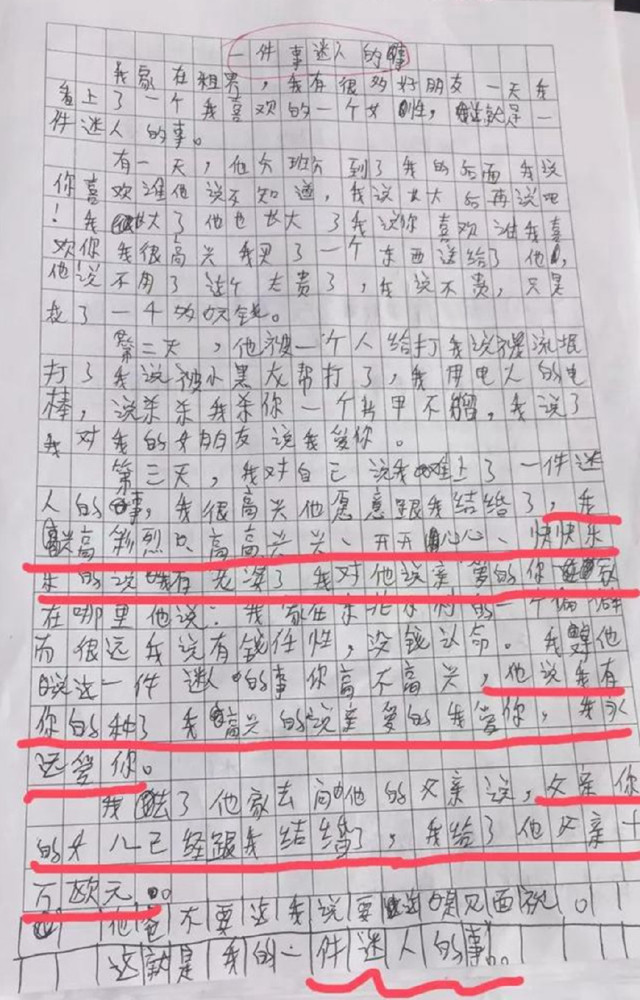 一件事迷人的事
我家在祖界，我有很多好朋友一天我
看上了一个我喜欢的一个女性，就是一
件迷人的事。
有一天，他分班分到了我的后面我说
你喜欢谁他说不知道，我说长大后再说吧
！我长大了他也长大了我说你喜欢谁我喜
欢你我很高兴我买了一个东西送给了他，
他说不用了这个太贵了，我说不贵，只是
花了一千多的钱。
第二天，他被一个人给打我说是流氓
打了我说被小黑龙帮打了，我用电人的电
棒，说杀杀我杀你一个片甲不留，我说了
我对我的女朋友说我爱你。
第三天，我对自己说我上了一件迷
人的事，我很高兴他愿意跟我结婚了，我
兴高彩烈只高高兴兴、开开心心、快快乐
乐的说我有老婆了我对他说亲爱的你家
在哪里他说：我家住东北农村的一个偏僻
而很远我说有钱任性，没钱认命。我他
说这一件迷人的事你高不高兴，他说我有
你的种了我高兴的说亲爱的我爱你，我永
远爱你。
我去了他家去问他的父亲说，父亲你
的女儿已经跟我结婚了，我给了他父亲十
万欧元。
他爸不要这我说要这是见面礼。
这就是我的一件迷人的事。